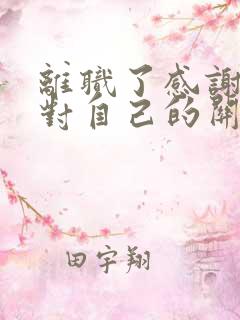 離職了感謝
對自己的開
田宇翔